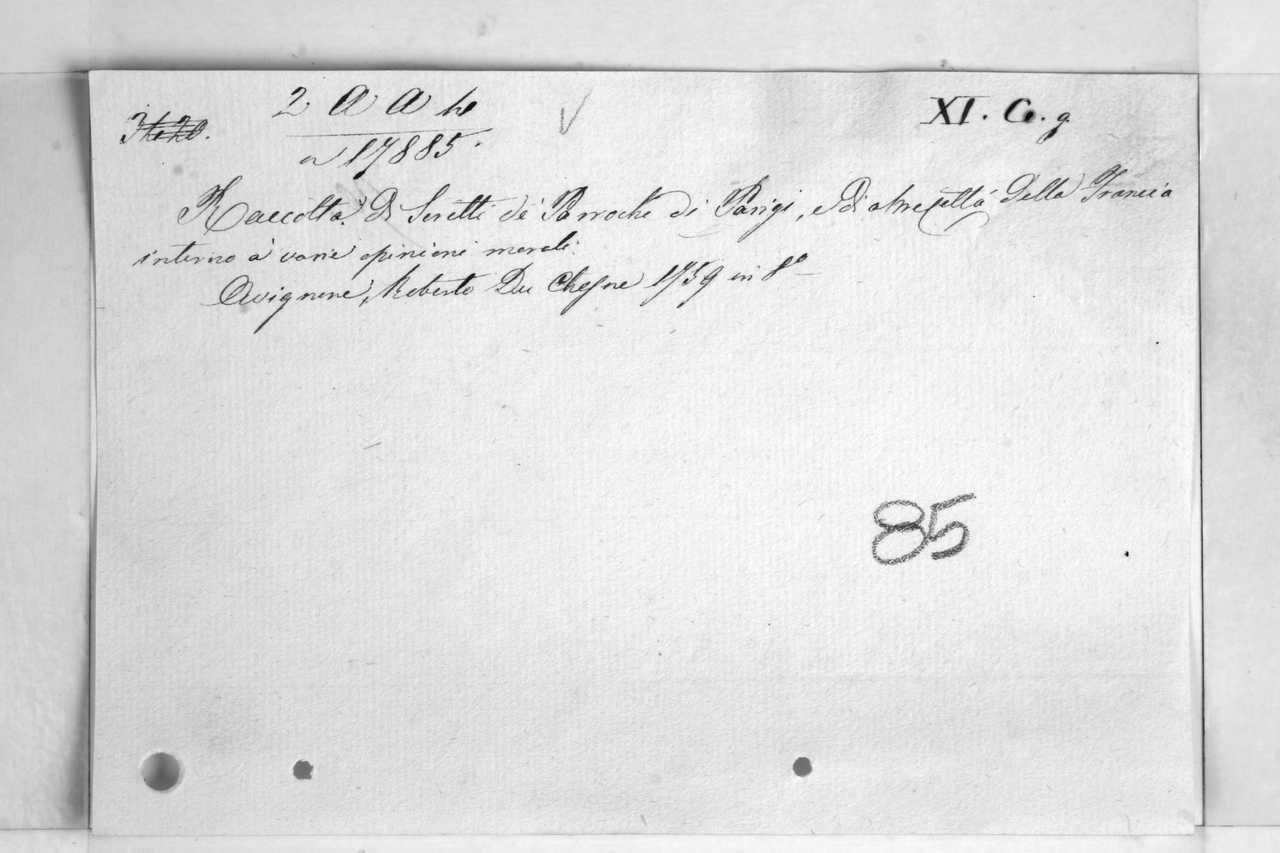 2 A A h
a 17885.
XI. G. g
Raccolta di Scritti de' Parrochi di Parigi, e di altre città della Francia
intorno a' varie opinioni morali.
Avignone, Roberto Du Chesne 1759 in 8º
85